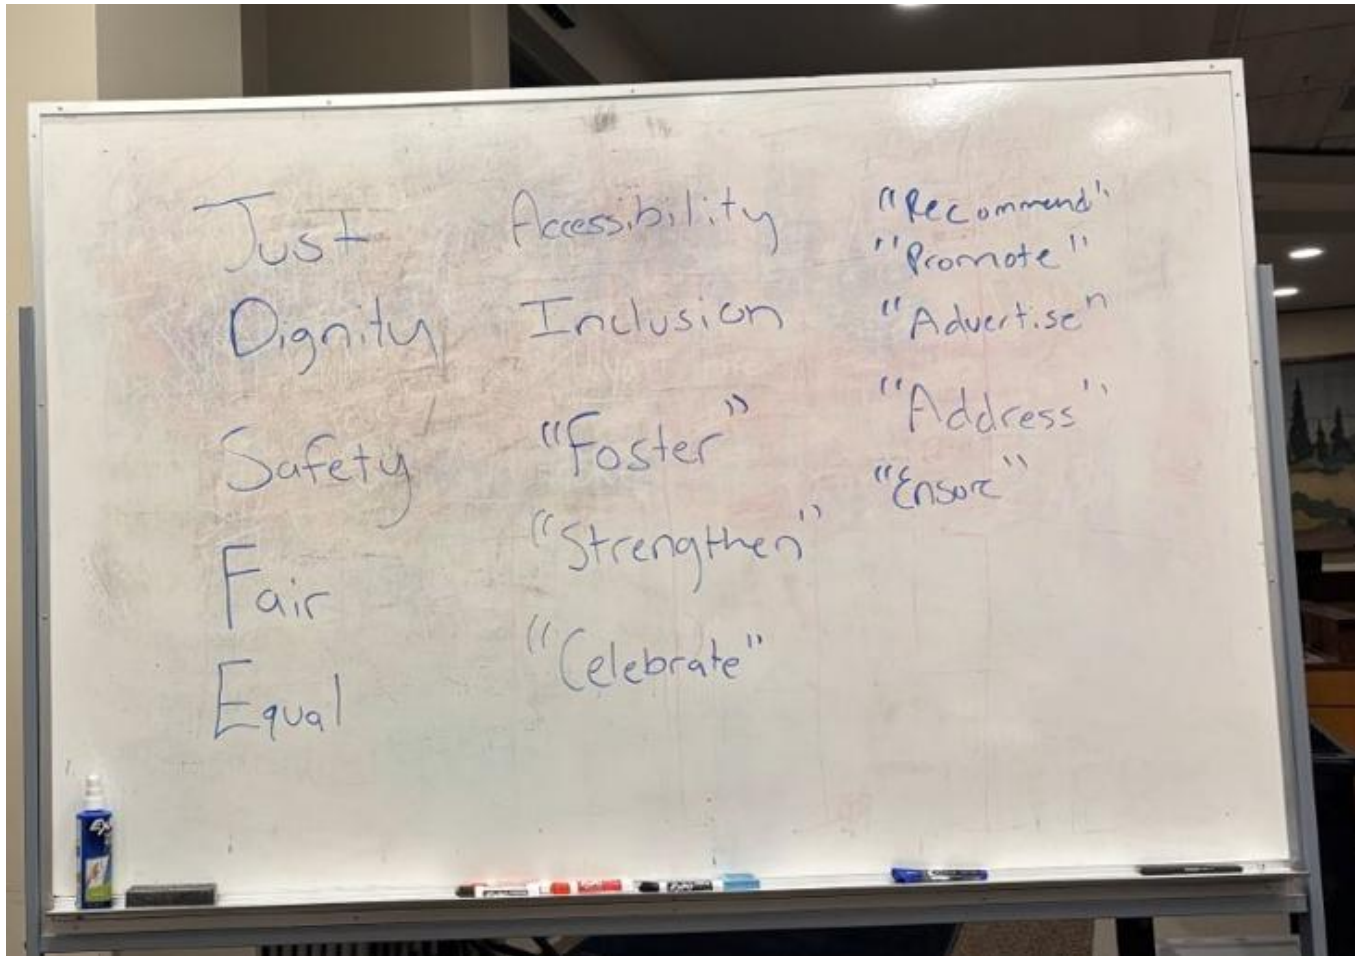 Just
Dignity
Safety
Fair
Equal
Accessibility
Inclusion
"Foster"
"Strengthen"
"Celebrate"
"Recommend"
"Promote"
"Advertise"
"Address"
"Ensure"